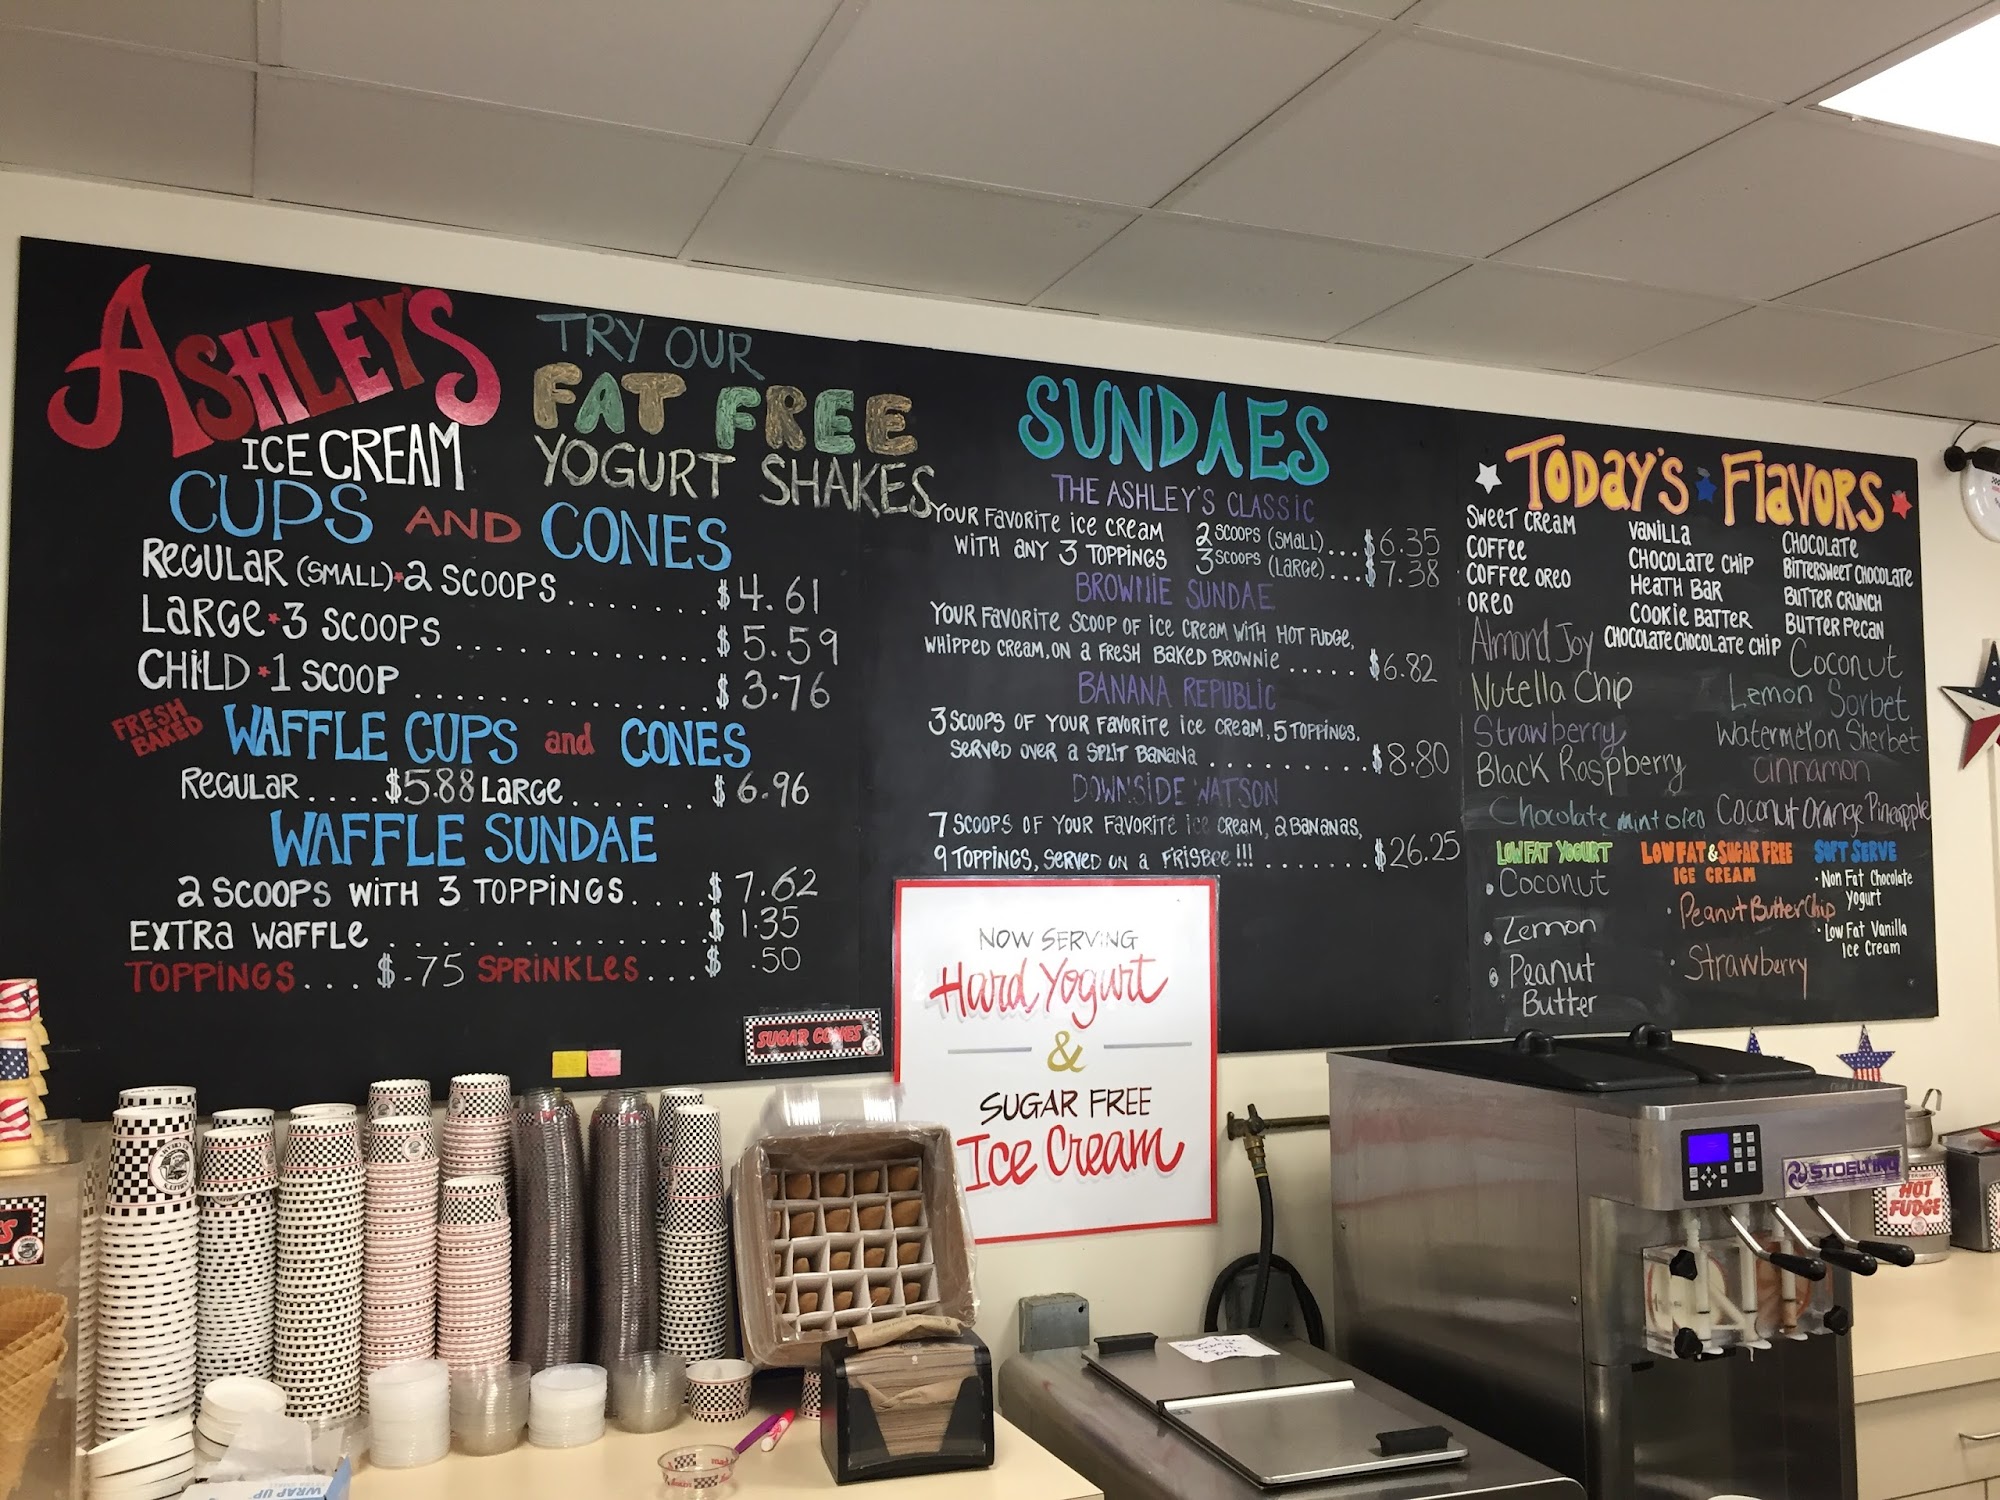 ASHLEY'S
ICE CREAM
TRY OUR
FAT FREE
YOGURT SHAKES
CUPS AND CONES
REGULAR (SMALL)*2 SCOOPS ....... $4.61
LARGE*3 SCOOPS ............. $5.59
CHILD*1 SCOOP .............. $3.76
FRESH
BAKED
WAFFLE CUPS and CONES
REGULAR ....$5.88 LARGE ....... $6.96
WAFFLE SUNDAE
2 SCOOPS WITH 3 TOPPINGS.... $7.62
EXTRA WAFFLE ................ $1.35
TOPPINGS... $.75 SPRINKLES... $.50
SUNDAES
THE ASHLEY'S CLASSIC
YOUR FAVORITE ICE CREAM 2 SCOOPS (SMALL)... $6.35
WITH ANY 3 TOPPINGS 3 SCOOPS (LARGE)... $7.38
BROWNIE SUNDAE
YOUR FAVORITE SCOOP OF ICE CREAM WITH HOT FUDGE,
WHIPPED CREAM, ON A FRESH BAKED BROWNIE ...... $6.82
BANANA REPUBLIC
3 SCOOPS OF YOUR FAVORITE ICE CREAM, 5 TOPPINGS,
SERVED OVER A SPLIT BANANA .......... $8.80
DOWNSIDE WATSON
7 SCOOPS OF YOUR FAVORITE ICE CREAM, 2 BANANAS,
9 TOPPINGS, SERVED ON A FRISBEE!!! ........ $26.25
TODAY'S FLAVORS
SWEET CREAM
COFFEE
COFFEE OREO
OREO
VANILLA
CHOCOLATE CHIP
HEATH BAR
COOKIE BATTER
CHOCOLATE CHOCOLATE CHIP
CHOCOLATE
BITTERSWEET CHOCOLATE
BUTTER CRUNCH
BUTTER PECAN
Almond Joy
Nutella Chip
Strawberry
Black Raspberry
Chocolate mint oreo
Coconut
Lemon Sorbet
Watermelon Sherbet
Cinnamon
Coconut Orange Pineapple
LOW FAT YOGURT
• Coconut
• Lemon
• Peanut
Butter
LOW FAT & SUGAR FREE
ICE CREAM
• Peanut Butter Chip
• Strawberry
SOFT SERVE
• Non Fat Chocolate
Yogurt
• Low Fat Vanilla
Ice Cream
SUGAR CONES
NOW SERVING
Hard Yogurt
&
SUGAR FREE
Ice Cream
STOELTING
HOT
FUDGE
WRAP UP